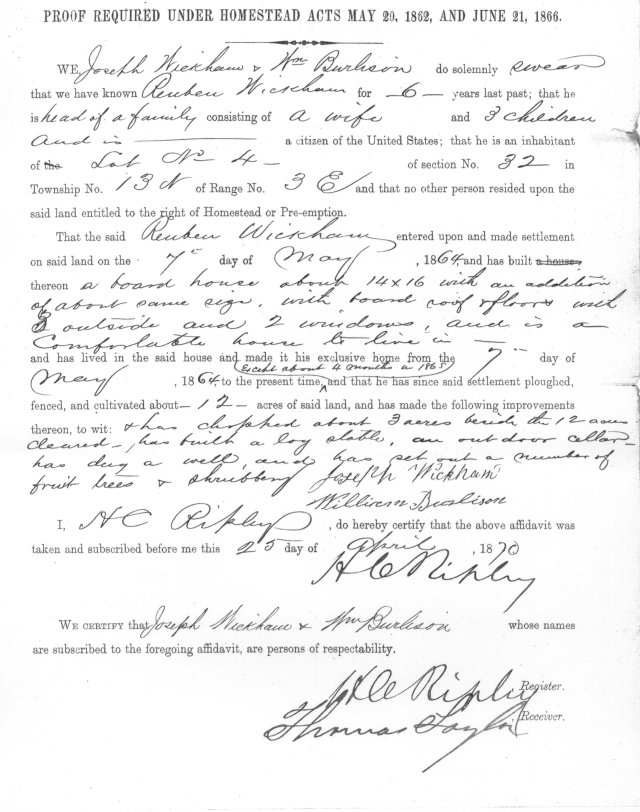 PROOF REQUIRED UNDER HOMESTEAD ACTS MAY 20, 1862, AND JUNE 21, 1866.
WE, Joseph Wickham & Wm Burlison do solemnly swear
that we have known Reuben Wickham for - 6 - years last past; that he
is head of a family consisting of a wife and 3 children
and is a citizen of the United States; that he is an inhabitant
of the Lot No 4 - of section No. 32 in
Township No. 13 N of Range No. 3 E and that no other person resided upon the
said land entitled to the right of Homestead or Pre-emption.
That the said Reuben Wickham entered upon and made settlement
on said land on the 7th day of May, 1864, and has built a house
thereon a board house about 14x16 with an addition
of about same size, with board roof & floors with
3 outside and 2 windows, and is a
Comfortable house to live in -
and has lived in the said house and made it his exclusive home from the 7th day of
Except about 4 months in 1865
May, 1864 to the present time, and that he has since said settlement ploughed,
fenced, and cultivated about - 12 - acres of said land, and has made the following improvements
thereon, to wit: & has chopped about 3 acres beside the 12 acres
cleared -, has built a log stable, an out door cellar -
has dug a well, and has set out a number of
fruit trees & shrubbery Joseph Wickham
William Burlison
I, H C Ripley, do hereby certify that the above affidavit was
taken and subscribed before me this 25 day of April, 1870
H C Ripley
WE CERTIFY that Joseph Wickham & Wm Burlison whose names
are subscribed to the foregoing affidavit, are persons of respectability.
H C Ripley Register.
Thomas Taylor Receiver.